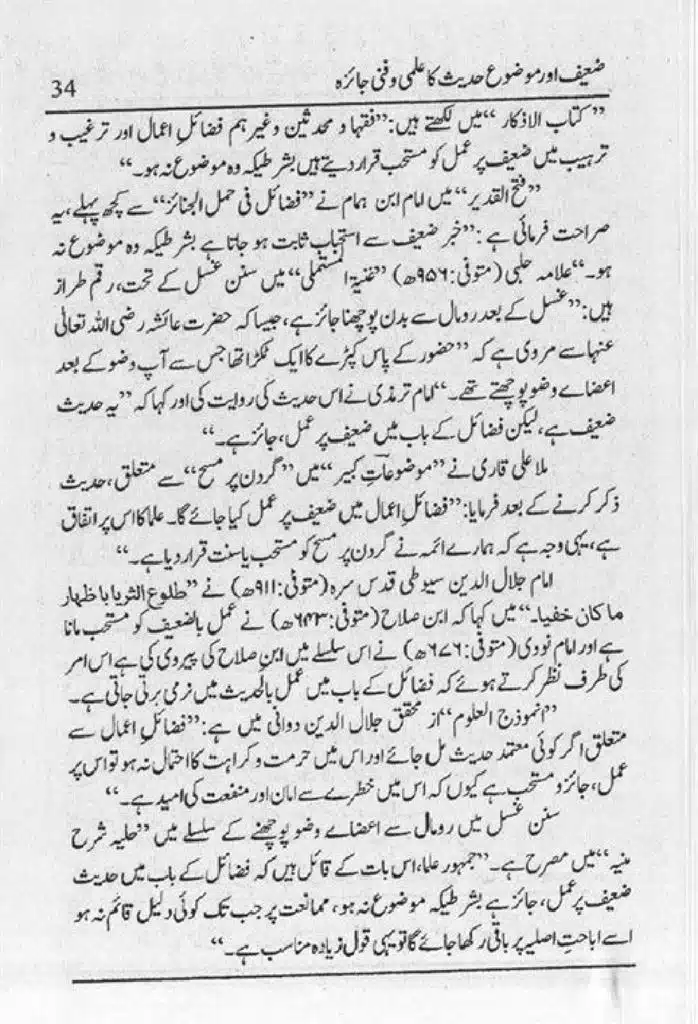 ضعیف اور موضوع حدیث کا علمی و فنی جائزہ
34
”کتاب الاذکار“ میں لکھتے ہیں: ”فقہا و محدثین و غیر ہم فضائلِ اعمال اور ترغیب و
ترہیب میں ضعیف پر عمل کو مستحب قرار دیتے ہیں بشر طیکہ وہ موضوع نہ ہو۔“
”فتح القدیر“ میں امام ابن ہمام نے ”فضائل فی حمل الجنائز“ سے کچھ پہلے، یہ
صراحت فرمائی ہے: ”خبر ضعیف سے استحباب ثابت ہو جاتا ہے بشر طیکہ وہ موضوع نہ
ہو۔“ علامہ حلبی (متوفی: ۹۵۶ھ) ”غنیۃ المستملی“ میں سنن غسل کے تحت، رقم طراز
ہیں: ”غسل کے بعد رومال سے بدن پوچھنا جائز ہے، جیسا کہ حضرت عائشہ رضی اللہ تعالیٰ
عنہا سے مروی ہے کہ ”حضور کے پاس کپڑے کا ایک ٹکڑا تھا جس سے آپ وضو کے بعد
اعضاے وضو پوچھتے تھے۔“ امام ترمذی نے اس حدیث کی روایت کی اور کہا کہ ”یہ حدیث
ضعیف ہے، لیکن فضائل کے باب میں ضعیف پر عمل، جائز ہے۔“
ملا علی قاری نے ”موضوعاتِ کبیر“ میں ”گردن پر مسح“ سے متعلق، حدیث
ذکر کرنے کے بعد فرمایا: ”فضائلِ اعمال میں ضعیف پر عمل کیا جائے گا۔ علما کا اس پر اتفاق
ہے، یہی وجہ ہے کہ ہمارے ائمہ نے گردن پر مسح کو مستحب یا سنت قرار دیا ہے۔“
امام جلال الدین سیوطی قدس سرہ (متوفی: ۹۱۱ھ) نے ”طلوع الثریا باظہار
ما کان خفیا۔“ میں کہا کہ ابن صلاح (متوفی: ۶۴۳ھ) نے عمل بالضعیف کو مستحب مانا
ہے اور امام نووی (متوفی: ۶۷۶ھ) نے اس سلسلے میں ابن صلاح کی پیروی کی ہے اس امر
کی طرف نظر کرتے ہوئے کہ فضائل کے باب میں عمل بالحدیث میں نرمی برتی جاتی ہے۔
”انموذج العلوم“ از محقق جلال الدین دوانی میں ہے: ”فضائلِ اعمال سے
متعلق اگر کوئی معتمد حدیث مل جائے اور اس میں حرمت و کراہت کا احتمال نہ ہو تو اس پر
عمل، جائز و مستحب ہے کیوں کہ اس میں خطرے سے امان اور منفعت کی امید ہے۔“
سنن غسل میں رومال سے اعضاے وضو پوچھنے کے سلسلے میں ”حلیہ شرح
منیہ“ میں مصرح ہے۔ ”جمہور علما، اس بات کے قائل ہیں کہ فضائل کے باب میں حدیث
ضعیف پر عمل، جائز ہے بشر طیکہ موضوع نہ ہو، ممانعت پر جب تک کوئی دلیل قائم نہ ہو
اسے اباحتِ اصلیہ پر باقی رکھا جائے گا تو یہی قول زیادہ مناسب ہے۔“